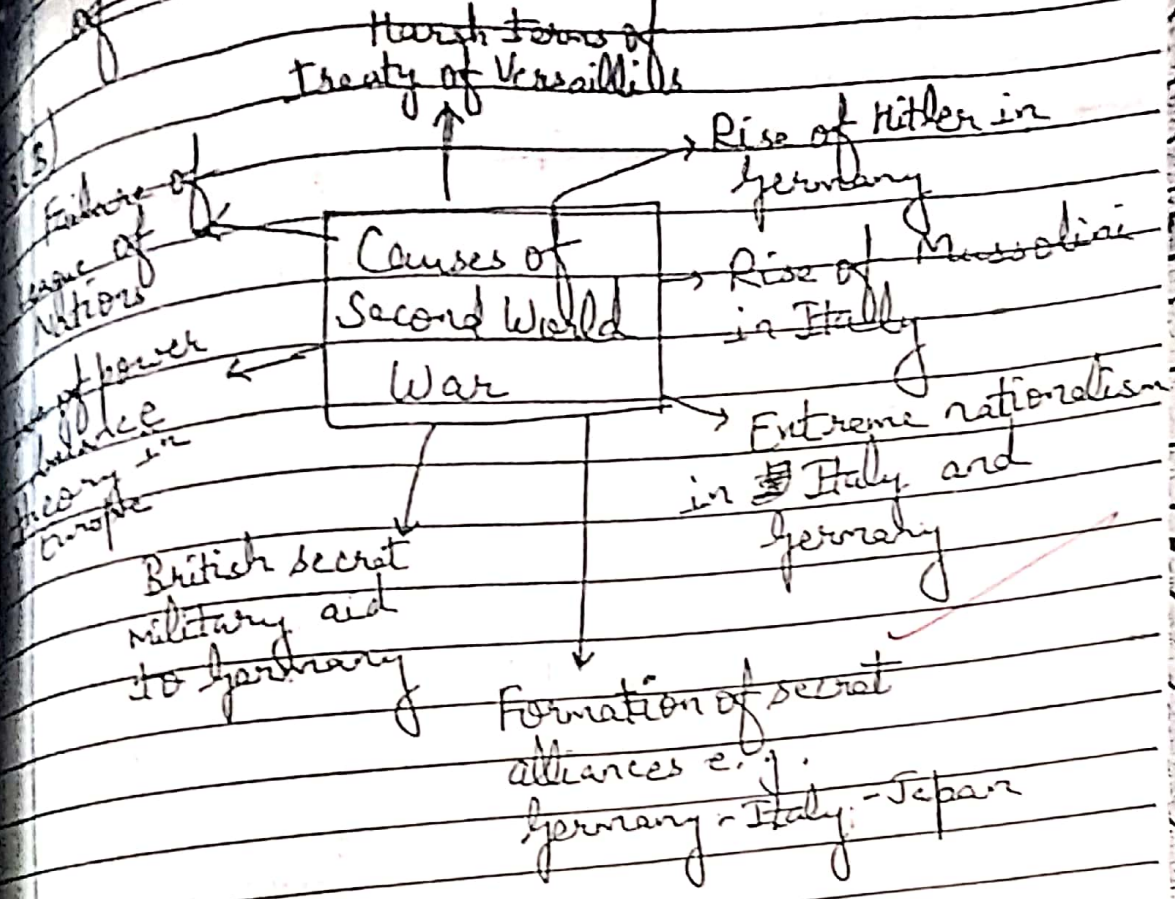 of
Harsh terms of
treaty of Versaillils
Rise of Hitler in
Germany
Failure of
League of
Nations
Causes of
Second World
War
Rise of Mussolini
in Itally
of power
balance
theory in
Europe
Extreme nationalism
in Italy and
Germany
British secret
military aid
to Germany
Formation of secret
alliances e.g.
Germany - Italy - Japan